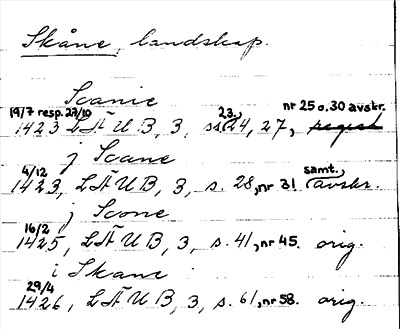 Skåne, landskap.
Scanie
19/7 resp. 27/10 23, nr 25 o. 30 avskr.
1423 LÄUB, 3, ss. 24, 27, regest
j Scane
4/12 samt.
1423, LÄUB, 3, s. 28, nr 31 avskr.
j Scone
16/2
1425, LÄUB, 3, s. 41, nr 45. orig.
i Skane
29/4
1426, LÄUB, 3, s. 61, nr 58. orig.